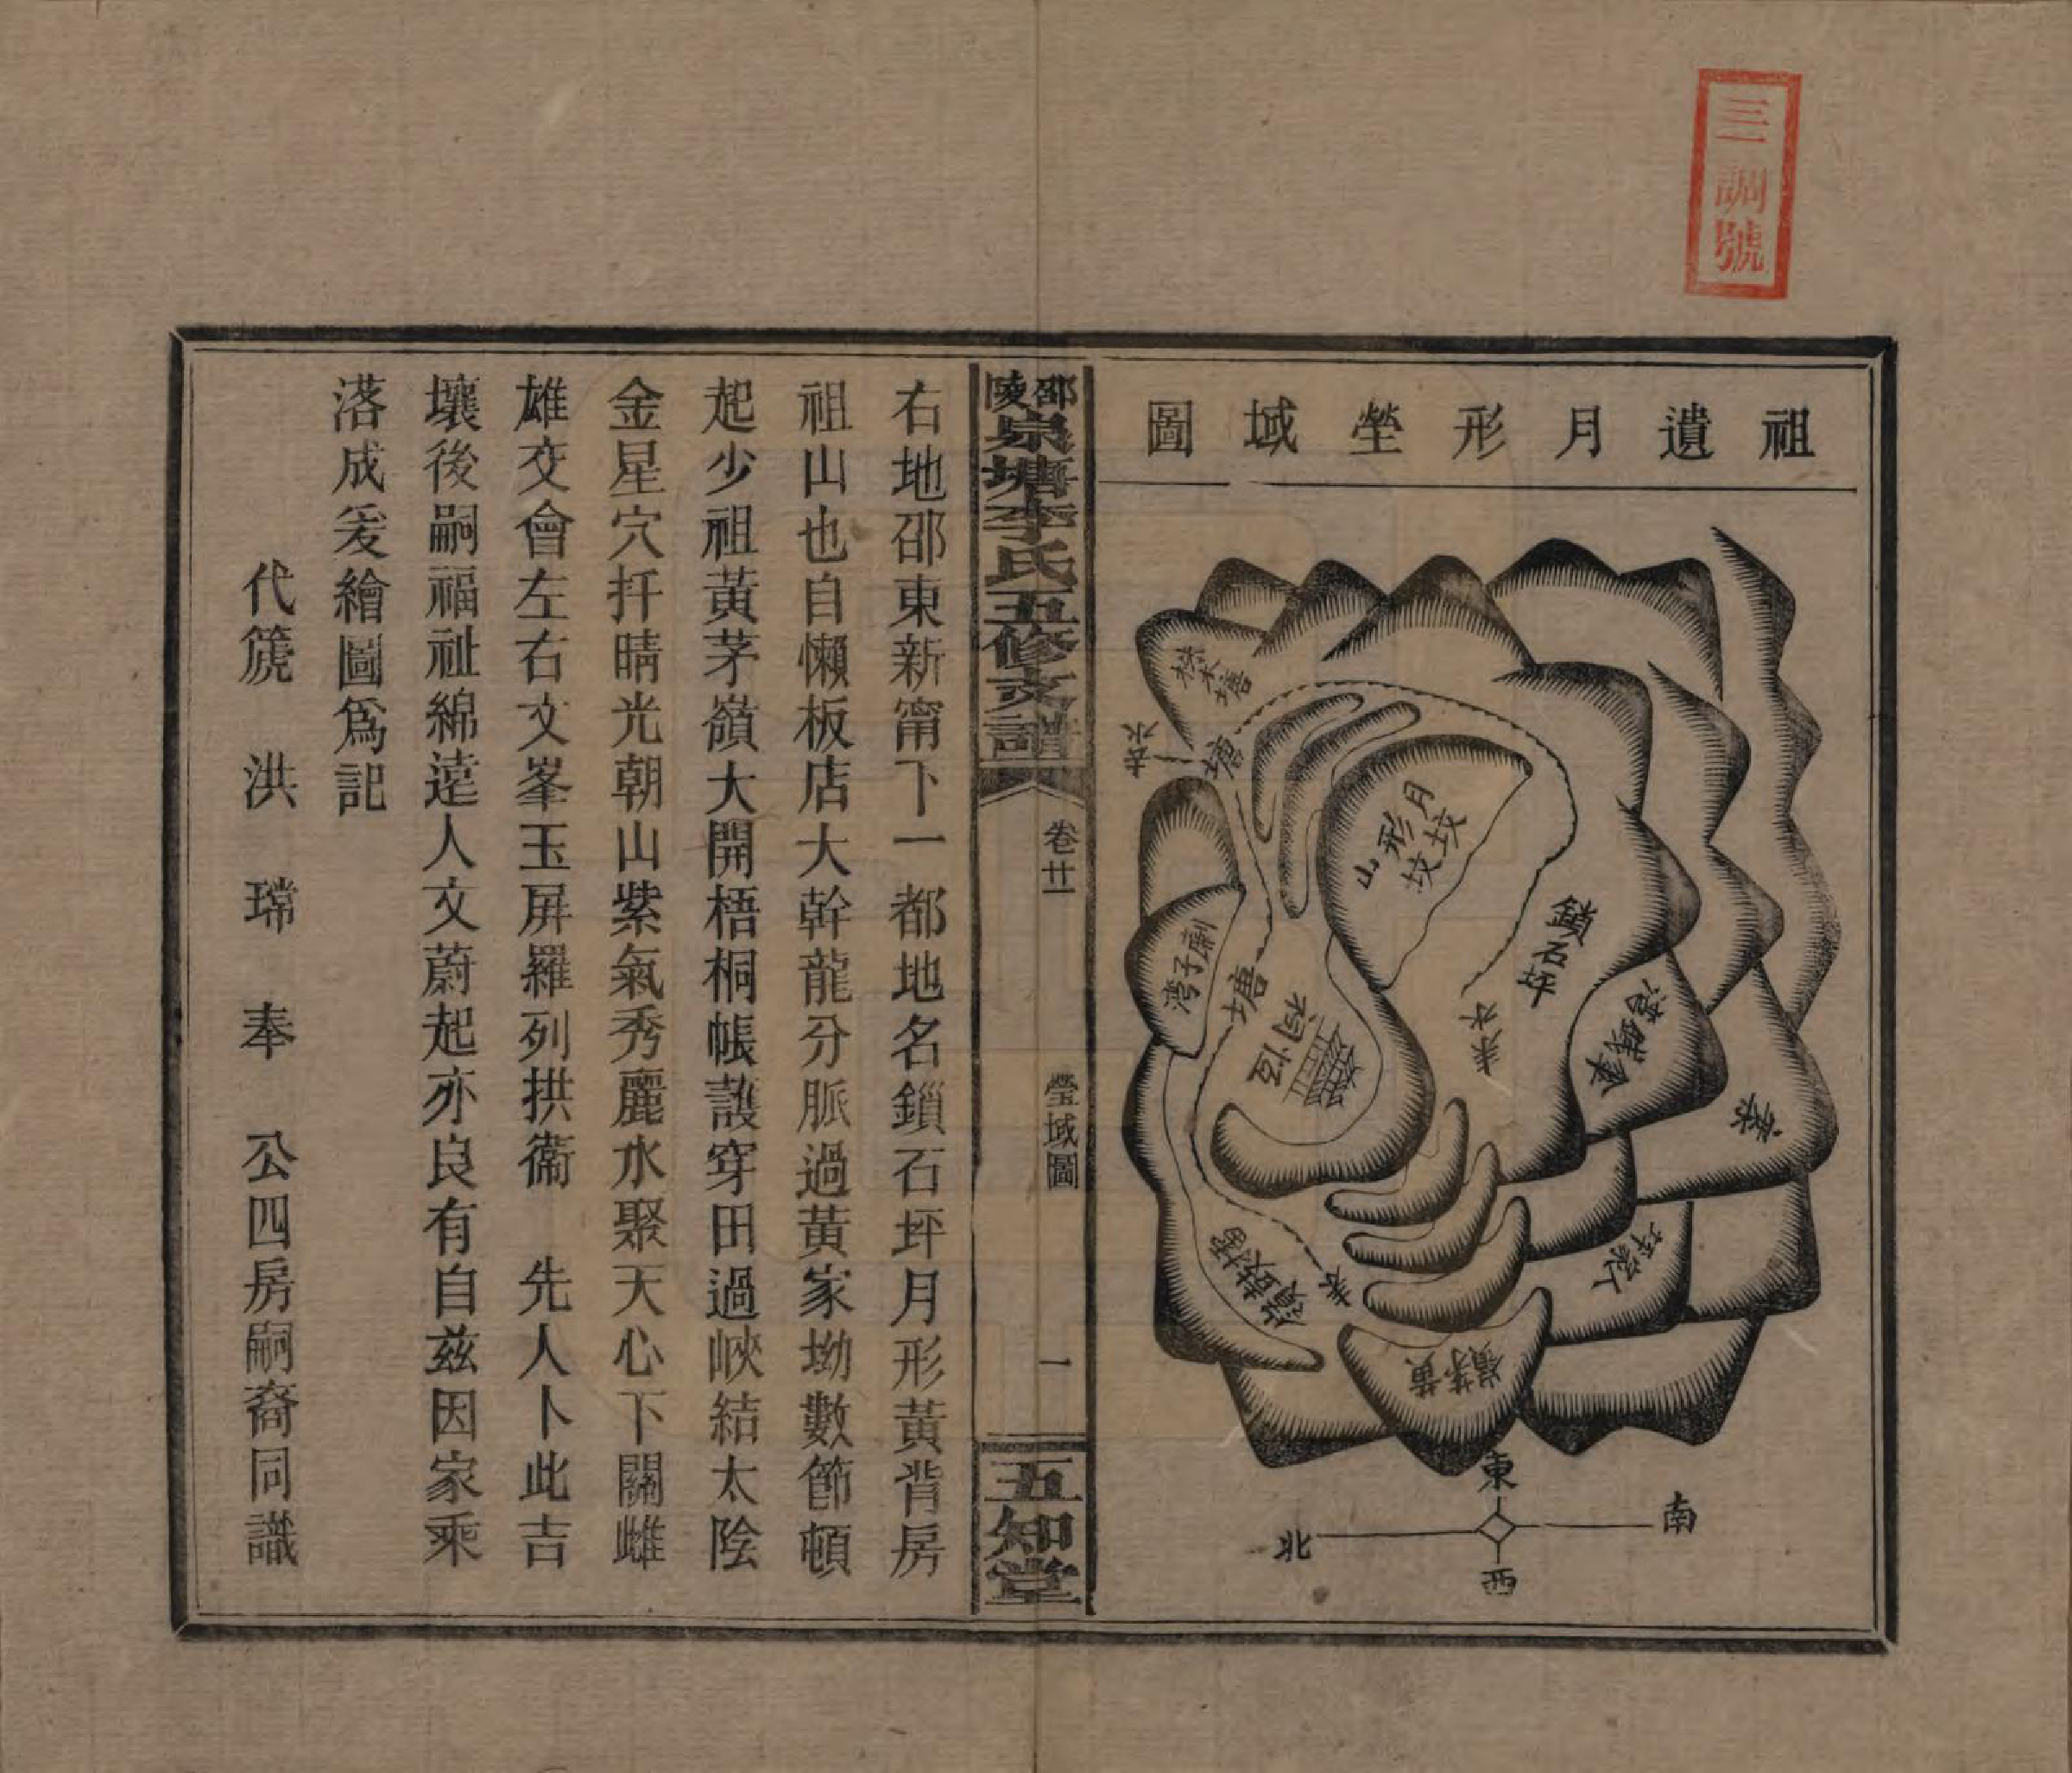 三調號
祖遺月形塋域圖
楳木塘
去水
塘
月形山
坟坟
鎖石坪
来水
灣子廟
塘
黄茅嶺
東
南
西
北
邵陵泉塘李氏五修支譜
卷廿一
塋域圖
一
五知堂
右地邵東新甯下一都地名鎖石坪月形黃背房
祖山也自懶板店大幹龍分脈過黃家坳數節頓
起少祖黃茅嶺大開梧桐帳護穿田過峽結太陰
金星穴扦晴光朝山紫氣秀麗水聚天心下關雌
雄交會左右文峯玉屏羅列拱衞　先人卜此吉
壤後嗣福祉綿遠人文蔚起亦良有自茲因家乘
落成爰繪圖爲記
代篪　洪　瑺　奉　公四房嗣裔同識